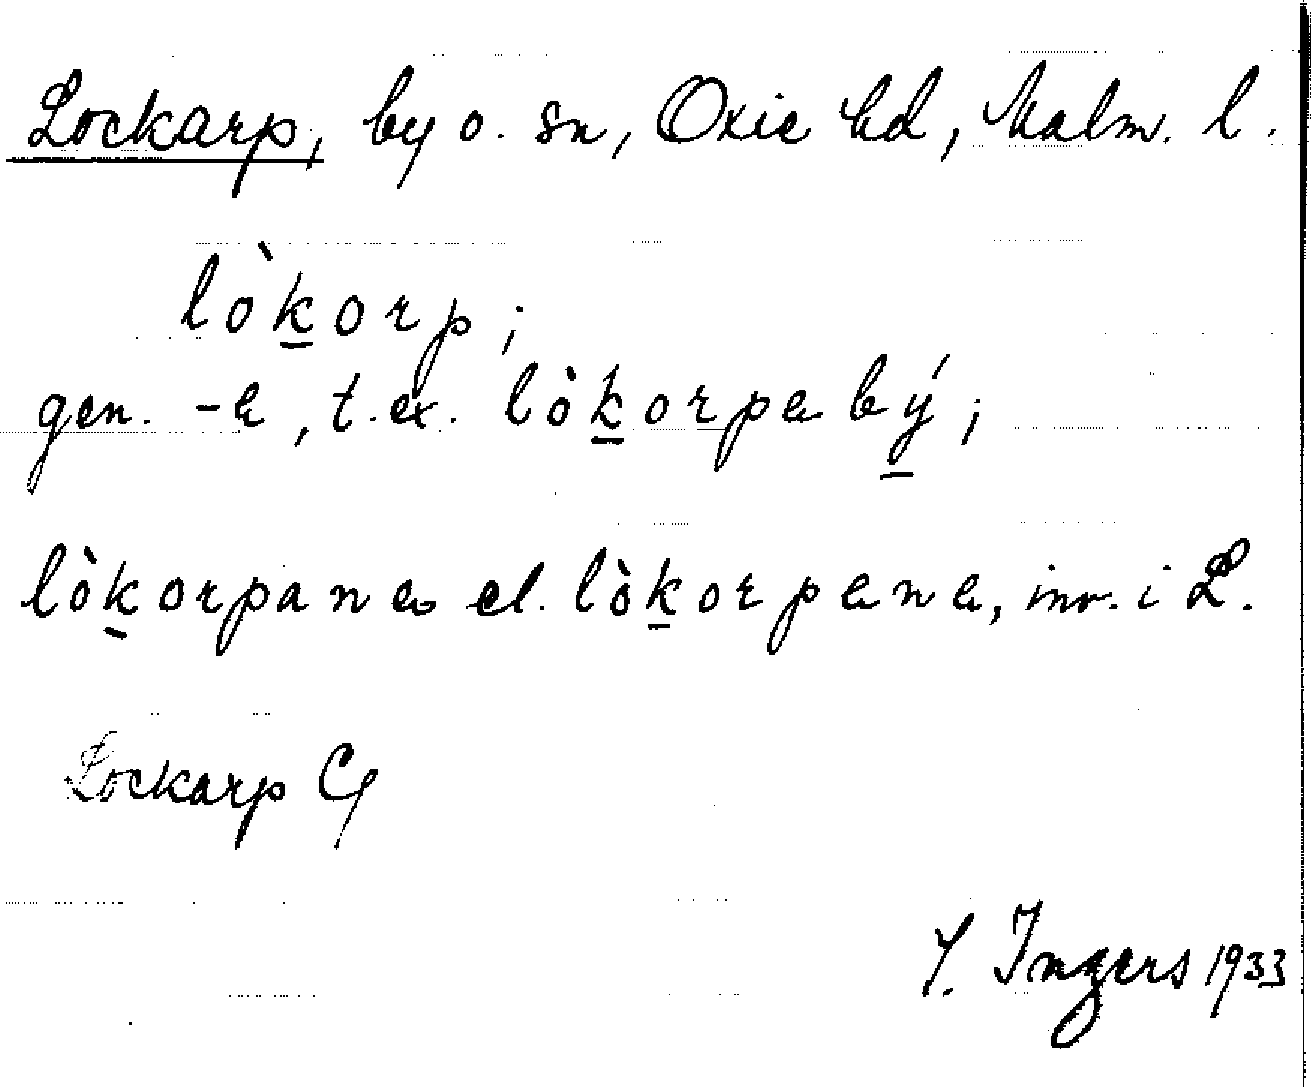 Lockarp, by o. sn, Oxie hd, Malm. l.
lòk̲orp;
gen. -a, t.ex. lòk̲orpa bý̲;
lòk̲orpana el. lòk̲orpena, inv. i L.
Lockarp
Ingers 1933